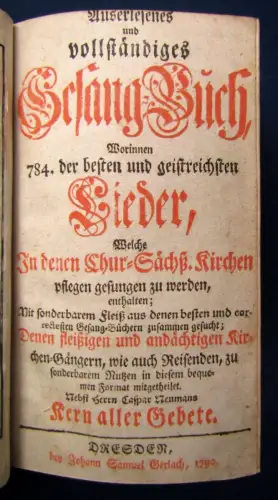 Auserlesenes
und
vollständiges
Gesang-Buch,
Worinnen
784. der besten und geistreichsten
Lieder,
Welche
In denen Chur-Sächß. Kirchen
pflegen gesungen zu werden,
enthalten;
Mit sonderbarem Fleiß aus denen besten und cor-
rectesten Gesang-Büchern zusammen gesucht;
Denen fleißigen und andächtigen Kir-
chen-Gängern, wie auch Reisenden, zu
sonderbarem Nutzen in diesem beque-
men Format mitgetheilet.
Nebst Herrn Caspar Neumans
Kern aller Gebete.
DRESDEN,
bey Johann Samuel Gerlach, 1790.